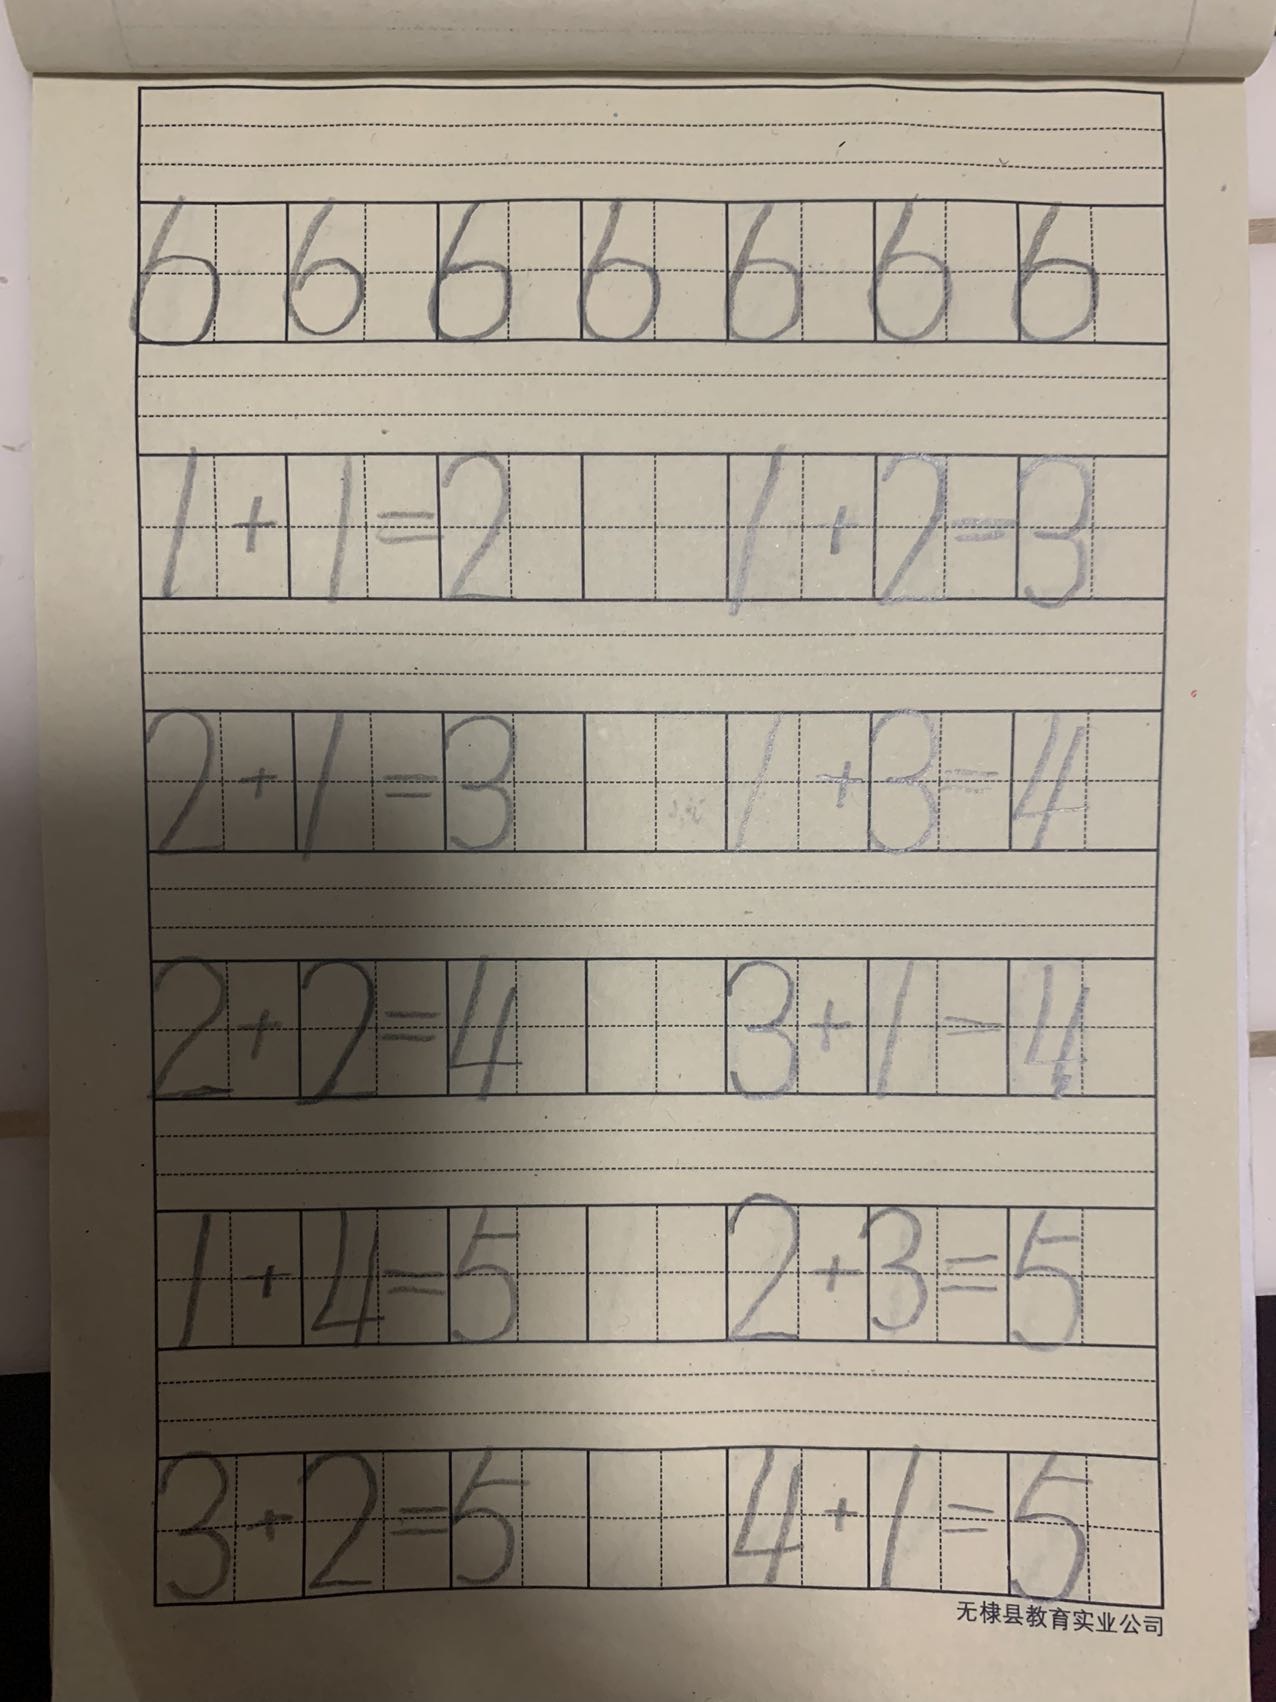 6 6 6 6 6 6 6
1+1=2 1+2=3
2+1=3 1+3=4
2+2=4 3+1=4
1+4=5 2+3=5
3+2=5 4+1=5
无棣县教育实业公司